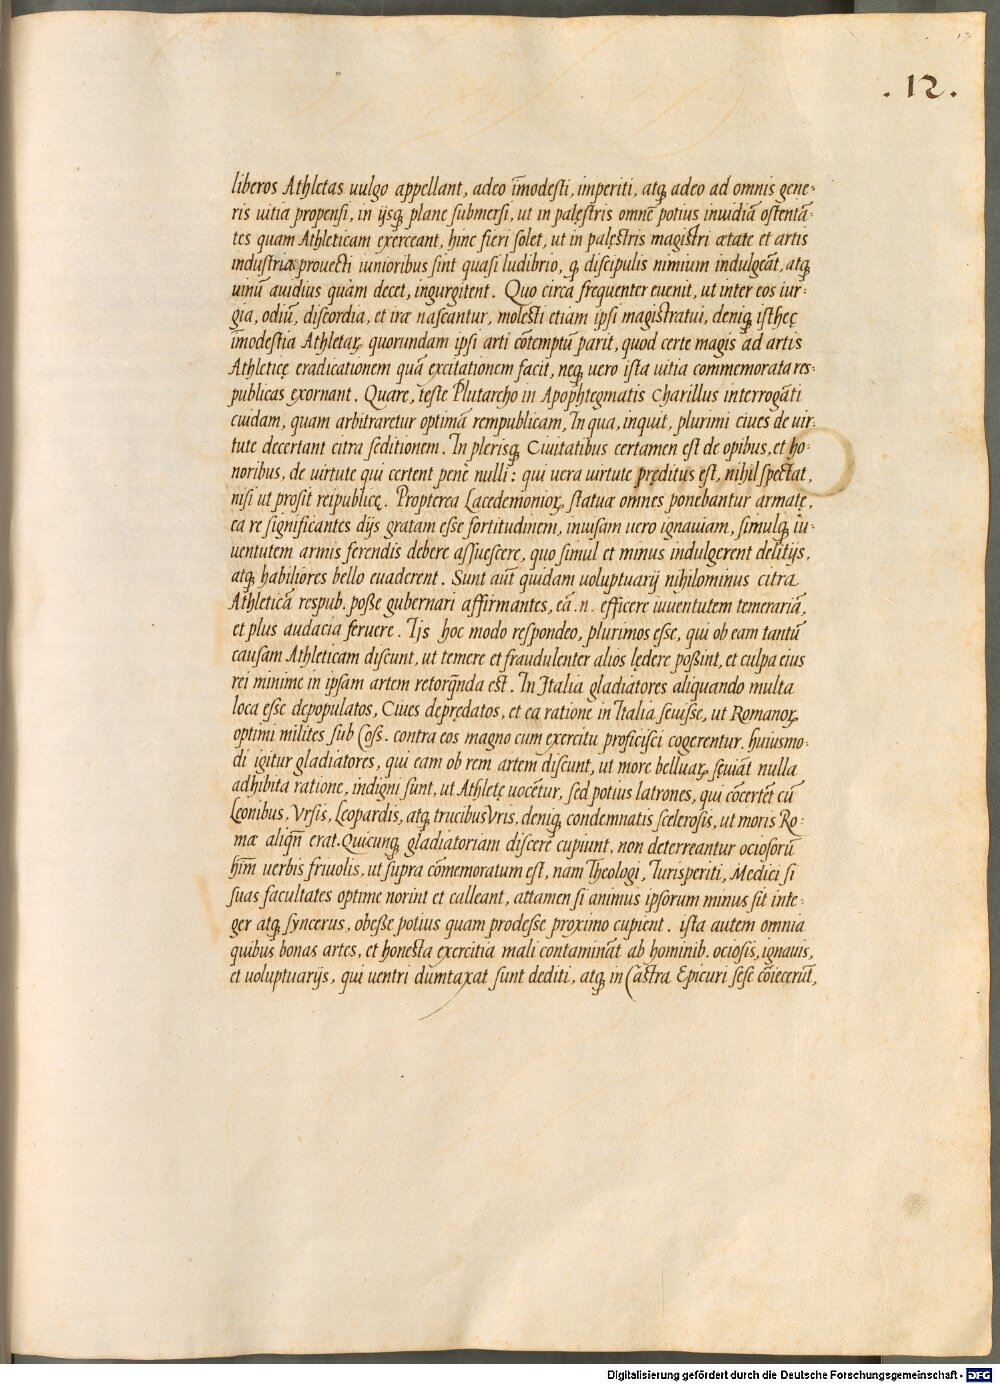 13
. 12 .
liberos Athletas uulgo appellant, adeo īmodesti, imperiti, atq; adeo ad omnis gene-
ris uitia propensi, in ijsq; plane submersi, ut in palęstris omnē potius inuidiā ostentā-
tes quam Athleticam exerceant, hinc fieri solet, ut in palęstris magistri ætate et artis
industria prouecti iunioribus sint quasi ludibrio, q; discipulis nimium indulgeāt, atq;
uinū auidius quàm decet, ingurgitent. Quo circa frequenter euenit, ut inter eos iur-
gia, odiū, discordia, et iræ nascantur, molesti etiam ipsi magistratui, deniq; isthęc
īmodestia Athletaꝝ quorundam ipsi arti cōtemptū parit, quod certe magis ad artis
Athleticę eradicationem quā excitationem facit, neq; uero ista uitia commemorata res-
publicas exornant. Quare, teste Plutarcho in Apophtegmatis Charillus interrogāti
cuidam, quam arbitraretur optimā rempublicam, In qua, inquit, plurimi ciues de uir-
tute decertant citra seditionem. In plerisq; Ciuitatibus certamen est de opibus, et ho-
noribus, de uirtute qui certent penè nulli: qui uera uirtute pręditus est, nihil spectat,
nisi ut prosit reipublicę. Propterea Lacedemonioꝝ statuæ omnes ponebantur armatę,
ea re significantes dijs gratam esse fortitudinem, inuisam uero ignauiam, simulq; iu-
uentutem armis ferendis debere assuescere, quo simul et minus indulgerent delitijs,
atq; habiliores bello euaderent. Sunt aūt quidam uoluptuarij nihilominus citra
Athleticā respub. posse gubernari affirmantes, eā .n. efficere iuuentutem temerariā,
et plus audacia feruere. Ijs hoc modo respondeo, plurimos esse, qui ob eam tantū
causam Athleticam discunt, ut temere et fraudulenter alios lędere possint, et culpa eius
rei minime in ipsam artem retorq̄nda est. In Italia gladiatores aliquando multa
loca esse depopulatos, Ciues depredatos, et ea ratione in Italia seuisse, ut Romanoꝝ
optimi milites sub Coss. contra eos magno cum exercitu proficisci cogerentur. huiusmo-
di igitur gladiatores, qui eam ob rem artem discunt, ut more belluaꝝ sęuiāt nulla
adhibita ratione, indigni sunt, ut Athletę uocētur, sed potius latrones, qui cōcertēt cū
Leonibus, Vrsis, Leopardis, atq; trucibus Vris, deniq; condemnatis scelerosis, ut moris Ro-
mæ aliqn̄ erat. Quicunq; gladiatoriam discere cupiunt, non deterreantur ociosorū
hīm uerbis friuolis, ut supra cōmemoratum est, nam Theologi, Iurisperiti, Medici si
suas facultates optime norint et calleant, attamen si animus ipsorum minus sit inte-
ger atq; syncerus, obesse potius quam prodesse proximo cupient. ista autem omnia
quibus bonas artes, et honesta exercitia mali contamināt ab hominib. ociosis, ignauis,
et uoluptuarijs, qui uentri dumtaxat sunt dediti, atq; in Castra Epicuri sese cōiecerūt,
Digitalisierung gefördert durch die Deutsche Forschungsgemeinschaft - DFG